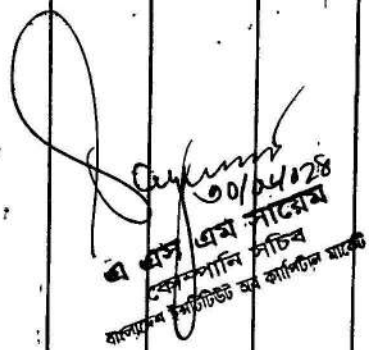 Sayem
৩০/০৫/০২৪
এ এস এম সায়েম
কোম্পানি সচিব
বাংলাদেশ ইন্সটিটিউট অব ক্যাপিটাল মার্কেট